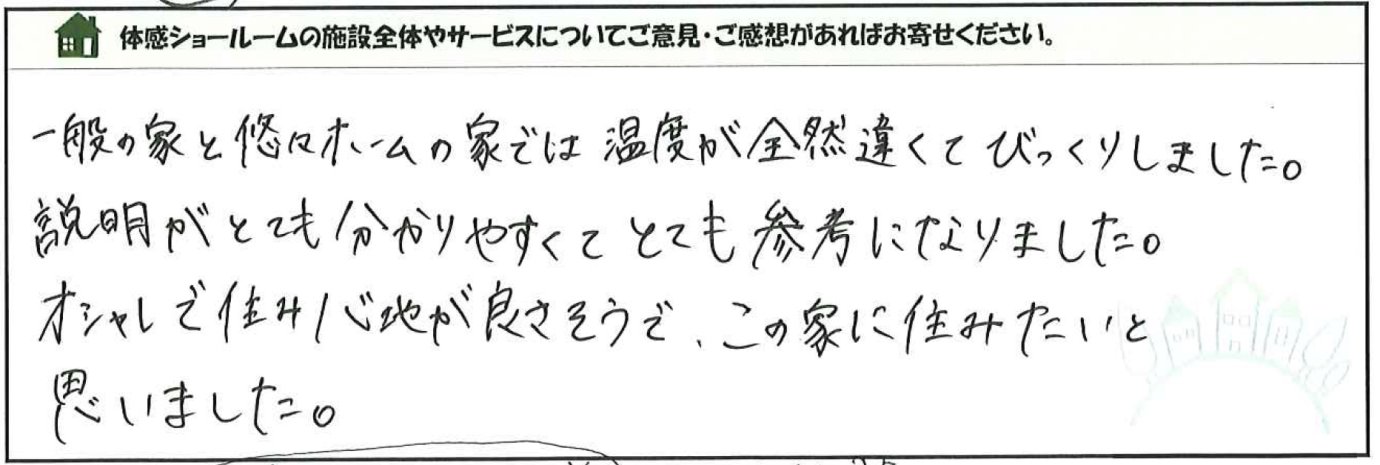 体感ショールームの施設全体やサービスについてご意見・ご感想があればお寄せください。
一般の家と悠々ホームの家では温度が全然違くてびっくりしました。
説明がとても分かりやすくてとても参考になりました。
オシャレで住み心地が良さそうで、この家に住みたいと
思いました。